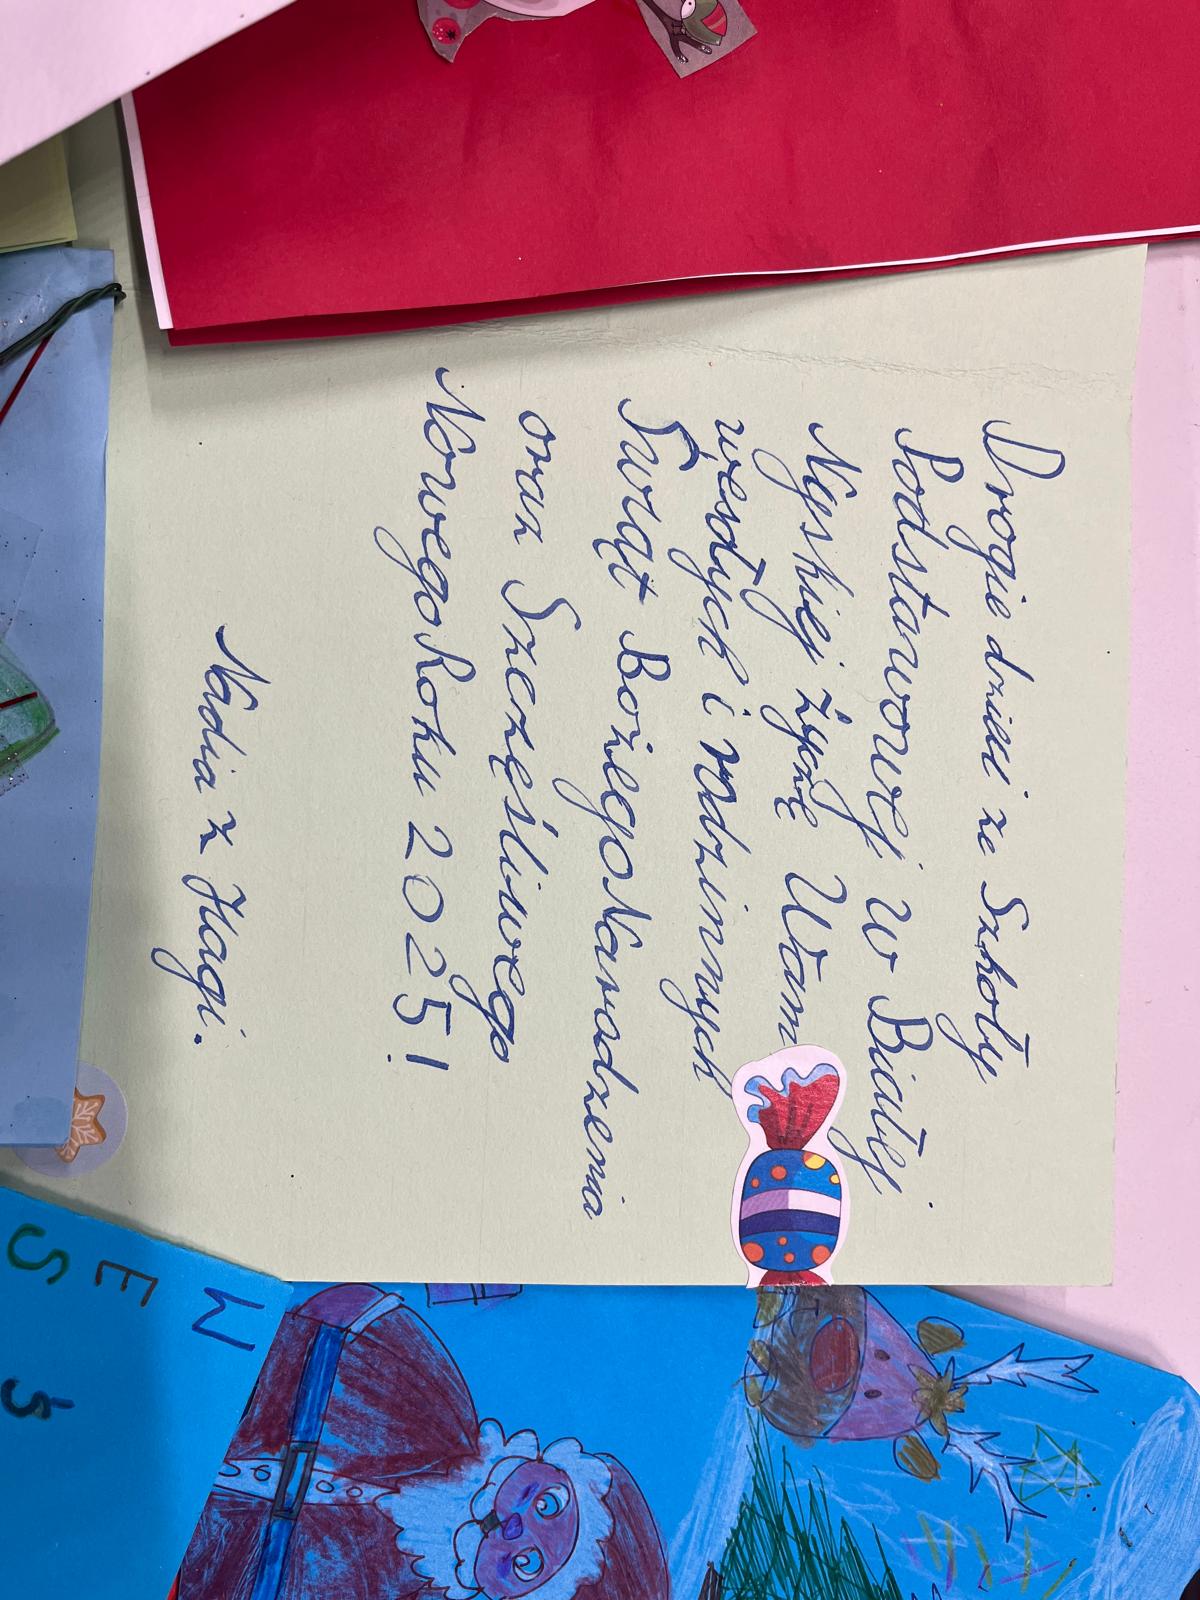 Drogie dzieci ze Szkoły
Podstawowej w Białej
Nyskiej życzę Wam
wesołych i rodzinnych
Świąt Bożego Narodzenia
oraz Szczęśliwego
Nowego Roku 2025!
Nadia z Hagi.
W
E
S